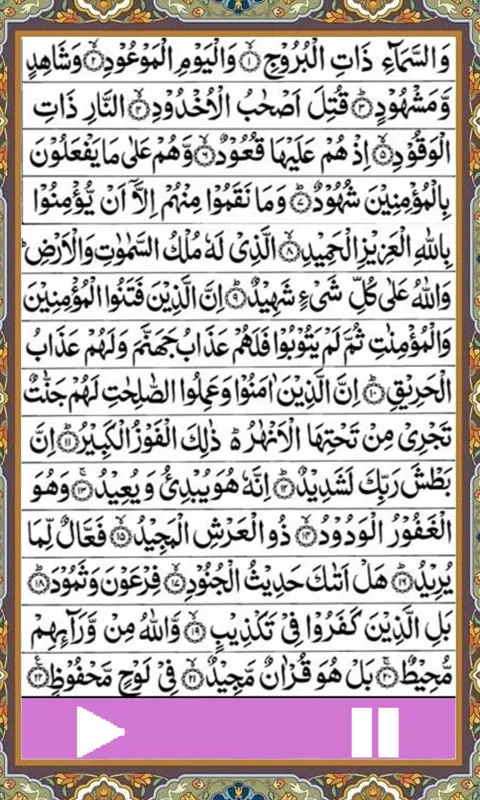 وَالسَّمَآءِ ذَاتِ الْبُرُوْجِۙ‏﴿۱﴾ وَالْيَوْمِ الْمَوْعُوْدِۙ‏﴿۲﴾ وَشَاهِدٍ
وَّمَشْهُوْدٍؕ‏﴿۳﴾ قُتِلَ اَصْحٰبُ الْاُخْدُوْدِۙ‏﴿۴﴾ النَّارِ ذَاتِ
الْوَقُوْدِۙ‏﴿۵﴾ اِذْ هُمْ عَلَيْهَا قُعُوْدٌۙ‏﴿۶﴾ وَّهُمْ عَلٰى مَا يَفْعَلُوْنَ
بِالْمُؤْمِنِيْنَ شُهُوْدٌؕ‏﴿۷﴾ وَمَا نَقَمُوْا مِنْهُمْ اِلَّاۤ اَنْ يُّؤْمِنُوْا
بِاللّٰهِ الْعَزِيْزِ الْحَمِيْدِۙ‏﴿۸﴾ الَّذِىْ لَهٗ مُلْكُ السَّمٰوٰتِ وَالْاَرْضِؕ
وَاللّٰهُ عَلٰى كُلِّ شَىْءٍ شَهِيْدٌؕ‏﴿۹﴾ اِنَّ الَّذِيْنَ فَتَنُوا الْمُؤْمِنِيْنَ
وَالْمُؤْمِنٰتِ ثُمَّ لَمْ يَتُوْبُوْا فَلَهُمْ عَذَابُ جَهَنَّمَ وَلَهُمْ عَذَابُ
الْحَرِيْقِؕ‏﴿۱۰﴾ اِنَّ الَّذِيْنَ اٰمَنُوْا وَعَمِلُوا الصّٰلِحٰتِ لَهُمْ جَنّٰتٌ
تَجْرِىْ مِنْ تَحْتِهَا الْاَنْهٰرُ ؕ ذٰلِكَ الْفَوْزُ الْكَبِيْرُؕ‏﴿۱۱﴾ اِنَّ
بَطْشَ رَبِّكَ لَشَدِيْدٌؕ‏﴿۱۲﴾ اِنَّهٗ هُوَ يُبْدِئُ وَيُعِيْدُۚ‏﴿۱۳﴾ وَهُوَ
الْغَفُوْرُ الْوَدُوْدُۙ‏﴿۱۴﴾ ذُو الْعَرْشِ الْمَجِيْدُۙ‏﴿۱۵﴾ فَعَّالٌ لِّمَا
يُرِيْدُؕ‏﴿۱۶﴾ هَلْ اَتٰٮكَ حَدِيْثُ الْجُنُوْدِۙ‏﴿۱۷﴾ فِرْعَوْنَ وَثَمُوْدَؕ‏﴿۱۸﴾
بَلِ الَّذِيْنَ كَفَرُوْا فِىْ تَكْذِيْبٍۙ‏﴿۱۹﴾ وَّاللّٰهُ مِنْ وَّرَآٮِٕهِمْ
مُّحِيْطٌۚ‏﴿۲۰﴾ بَلْ هُوَ قُرْاٰنٌ مَّجِيْدٌۙ‏﴿۲۱﴾ فِىْ لَوْحٍ مَّحْفُوْظٍ‏﴿۲۲﴾